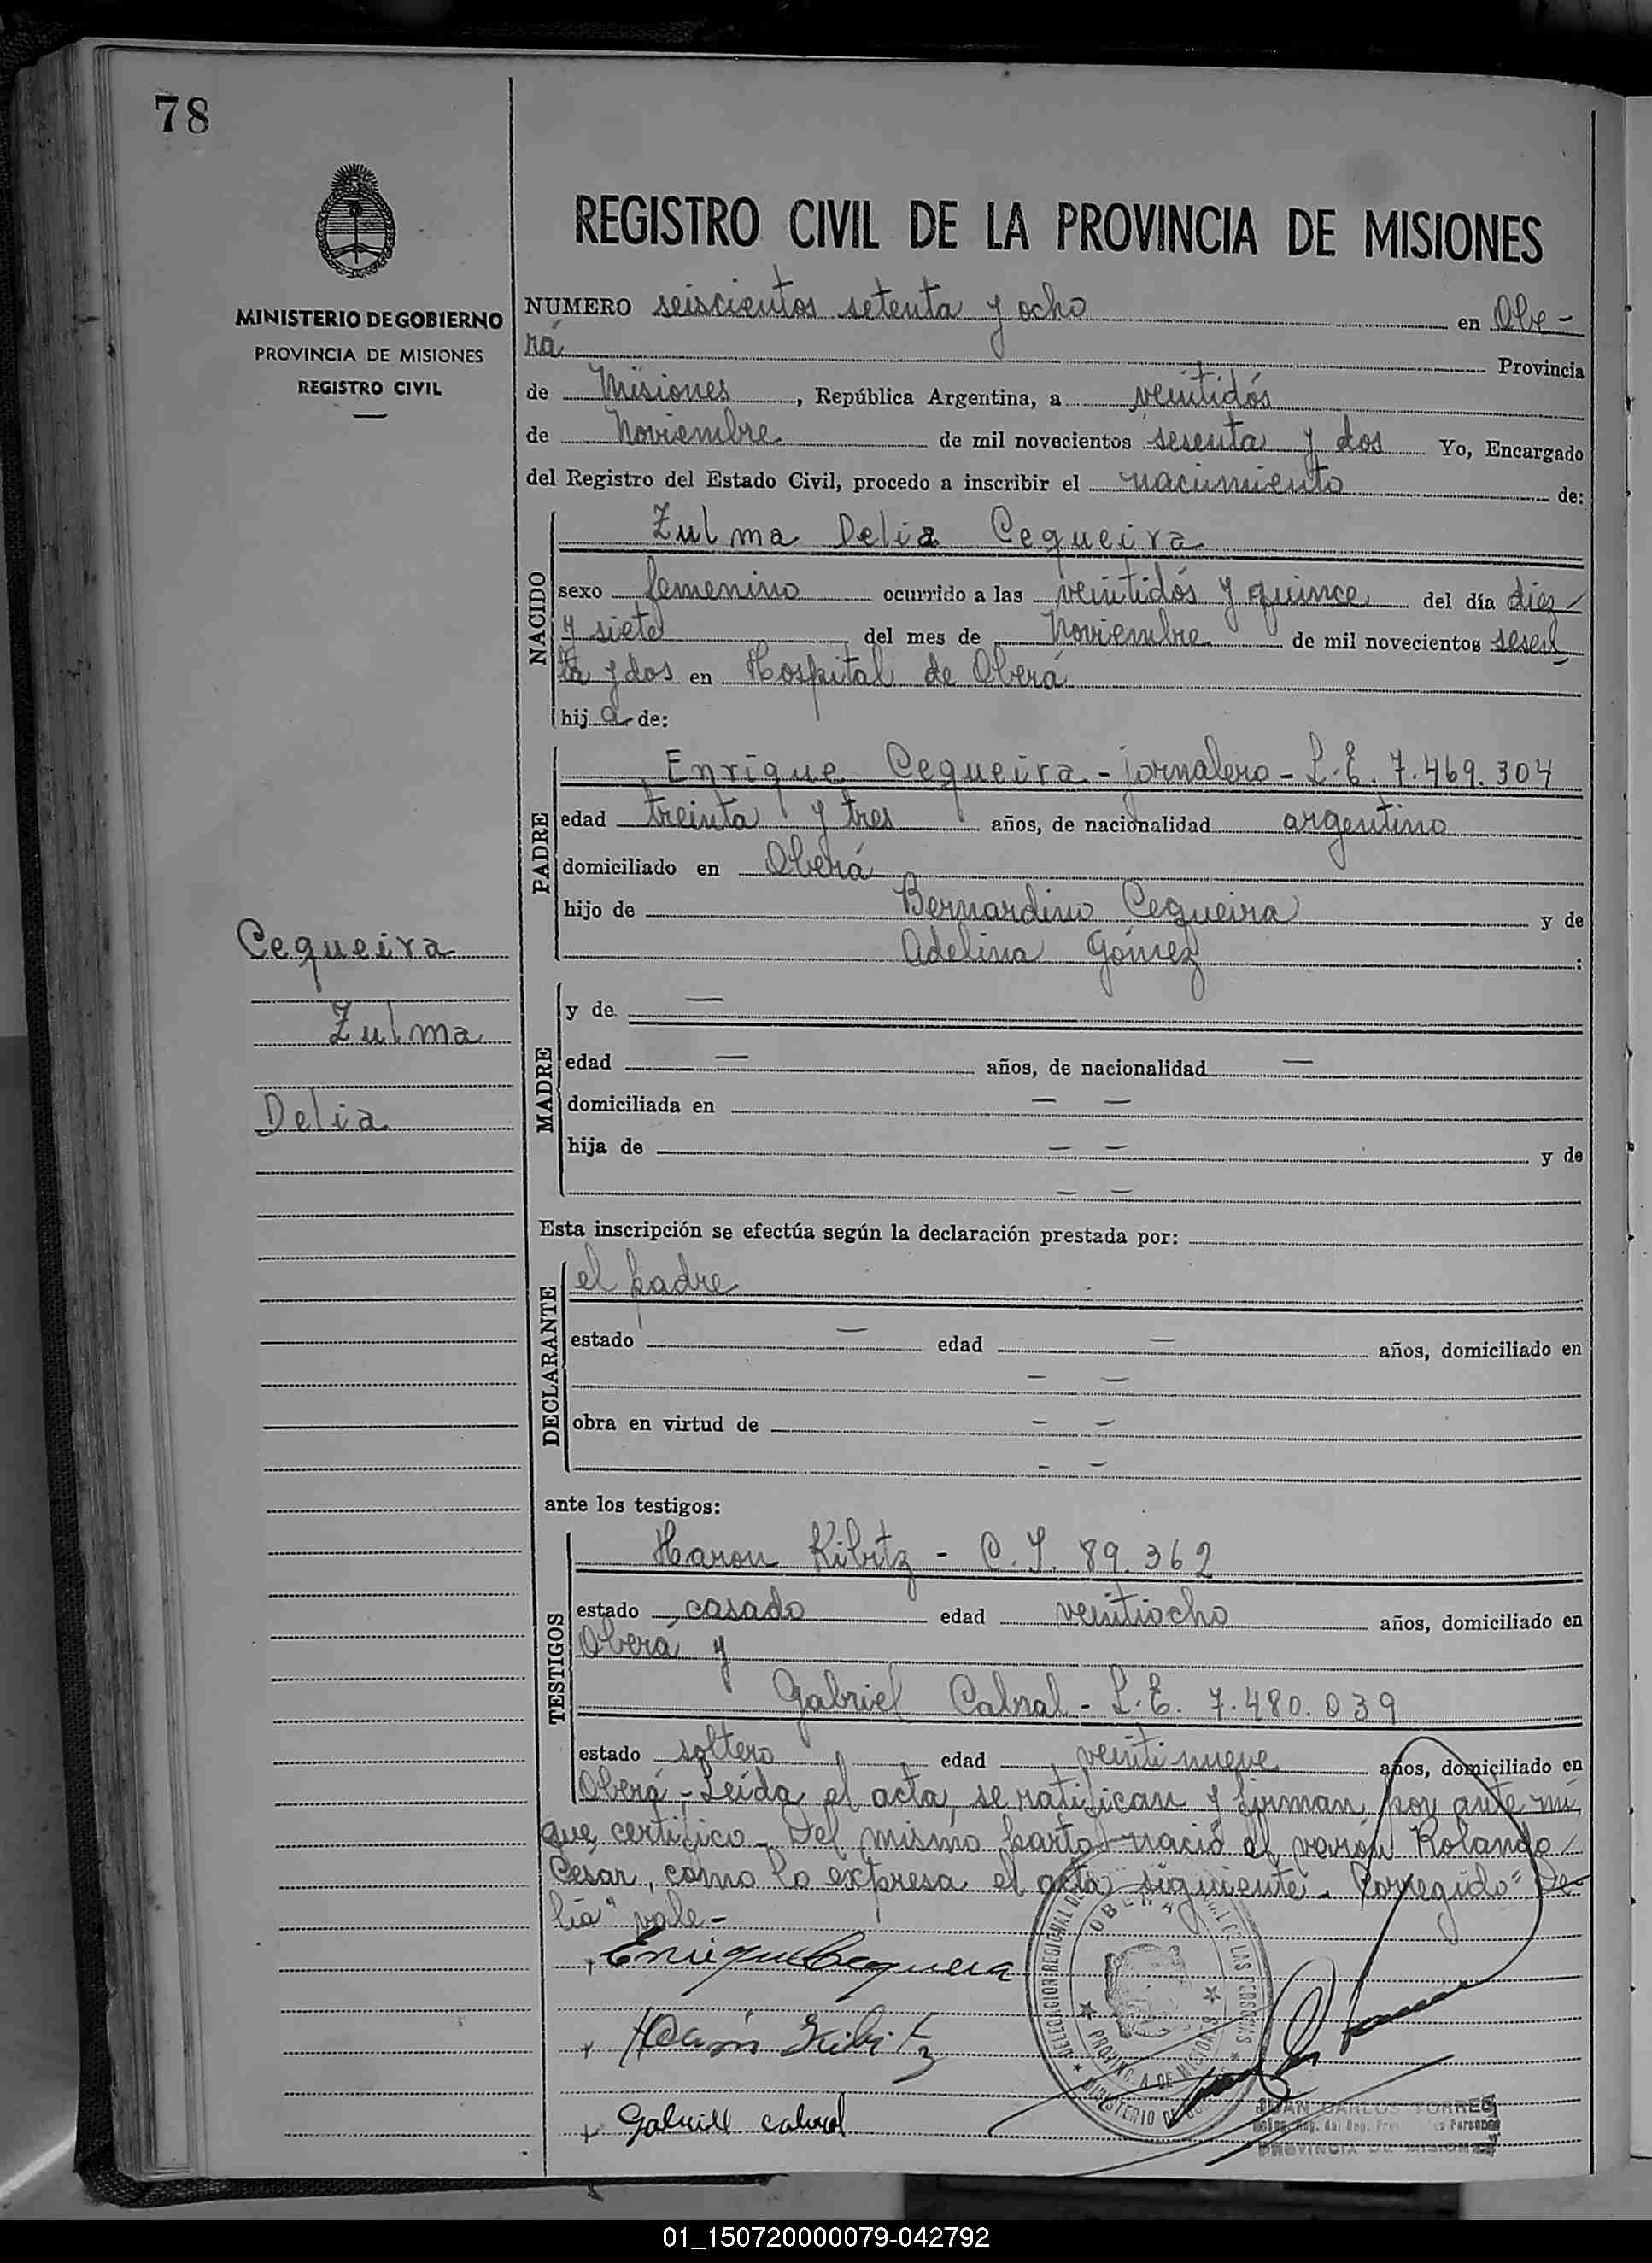 78
REGISTRO CIVIL DE LA PROVINCIA DE MISIONES
MINISTERIO DE GOBIERNO
PROVINCIA DE MISIONES
REGISTRO CIVIL
NUMERO seiscientos setenta y ocho en Obe-
rá Provincia
de Misiones, República Argentina, a veintidós
de Noviembre de mil novecientos sesenta y dos Yo, Encargado
del Registro del Estado Civil, procedo a inscribir el nacimiento de:
NACIDO
Zulma Delia Cequeira
sexo femenino ocurrido a las veintidós y quince del día diez
y siete del mes de Noviembre de mil novecientos sesen
ta y dos en Hospital de Oberá
hija de:
PADRE
Enrique Cequeira - jornalero - L.E. 7.469.304
edad treinta y tres años, de nacionalidad argentino
domiciliado en Oberá
hijo de Bernardino Cequeira y de
Adelina Gómez ;
Cequeira
Zulma
Delia
MADRE
y de —
edad — años, de nacionalidad —
domiciliada en — —
hija de — — y de
— —
Esta inscripción se efectúa según la declaración prestada por:
DECLARANTE
el padre
estado — edad — años, domiciliado en
— —
obra en virtud de — —
— —
ante los testigos:
TESTIGOS
Haron Kibitz - C.I. 89.362
estado casado edad veintiocho años, domiciliado en
Oberá y
Gabriel Cabral - L.E. 7.480.039
estado soltero edad veintinueve años, domiciliado en
Oberá - Leída el acta, se ratifican y firman hoy ante mí,
que certifico - Del mismo parto nació el varón Rolando
César, como lo expresa el acta siguiente. Corregido "De-
lia" vale -
Enrique Cequeira
Gabriell cabral
OBERA
PROVINCIA DE MISIONES
JUAN CARLOS TORRES
PROVINCIA DE MISIONES
01_150720000079-042792